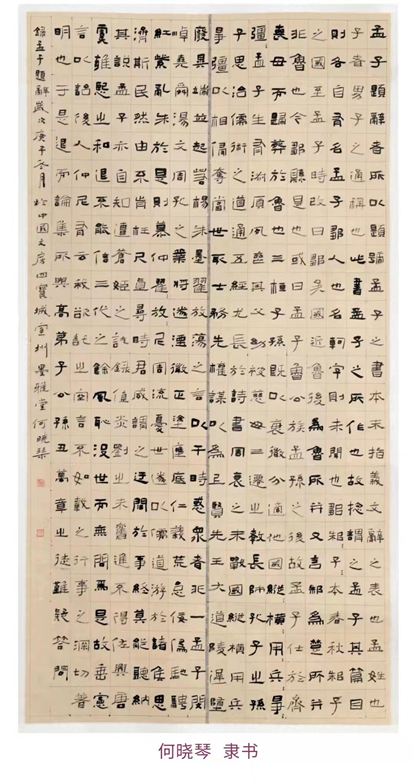 孟子題辭者所以題號孟子之書本末指義文辭之表也孟姓也
子者男子之通稱也此書孟子之所作也故總謂之孟子其篇目
則各自有名孟子鄒人也名軻字則未聞也鄒本春秋邾子
之國至孟子時改曰鄒矣國近魯後為魯所并又言邾為楚所并
非魯也今鄒縣是也或曰孟子魯公族孟孫之後故孟子仕於齊
喪母而歸葬於魯也三桓子孫既以衰微分適他國縱橫用兵爭
彊孟子生有淑質夙喪其父幼被慈母三遷之教長師孔子之孫
子思治儒術之道通五經尤長於詩書周衰之末戰國縱橫用兵
爭彊以相侵奪當世取士務先權謀以為上賢先王大道陵遲墮
廢異端並起若楊朱墨翟放蕩之言以干時惑衆者非一孟子閔
悼堯舜湯文周孔之業將遂湮微正塗壅底仁義荒怠佞偽馳騁
紅紫亂朱於是則慕仲尼周流憂世遂以儒道游於諸侯思
濟斯民然由不肯枉尺直尋時君咸謂之迂闊於事終莫能聽納
其說孟子亦自知遭蒼姬之訖錄值炎劉之未奮進不得佐興唐
虞雍熙之和退不能信三代之餘風恥沒世而無聞焉是故垂憲
言以詒後人仲尼有云我欲託之空言不如載之行事之深切著
明也於是退而論集所與高第弟子公孫丑萬章之徒難疑答問
錄孟子題辭歲次庚子冬月於中國文房四寶城宣州墨雅堂何曉琴
何晓琴 隶书